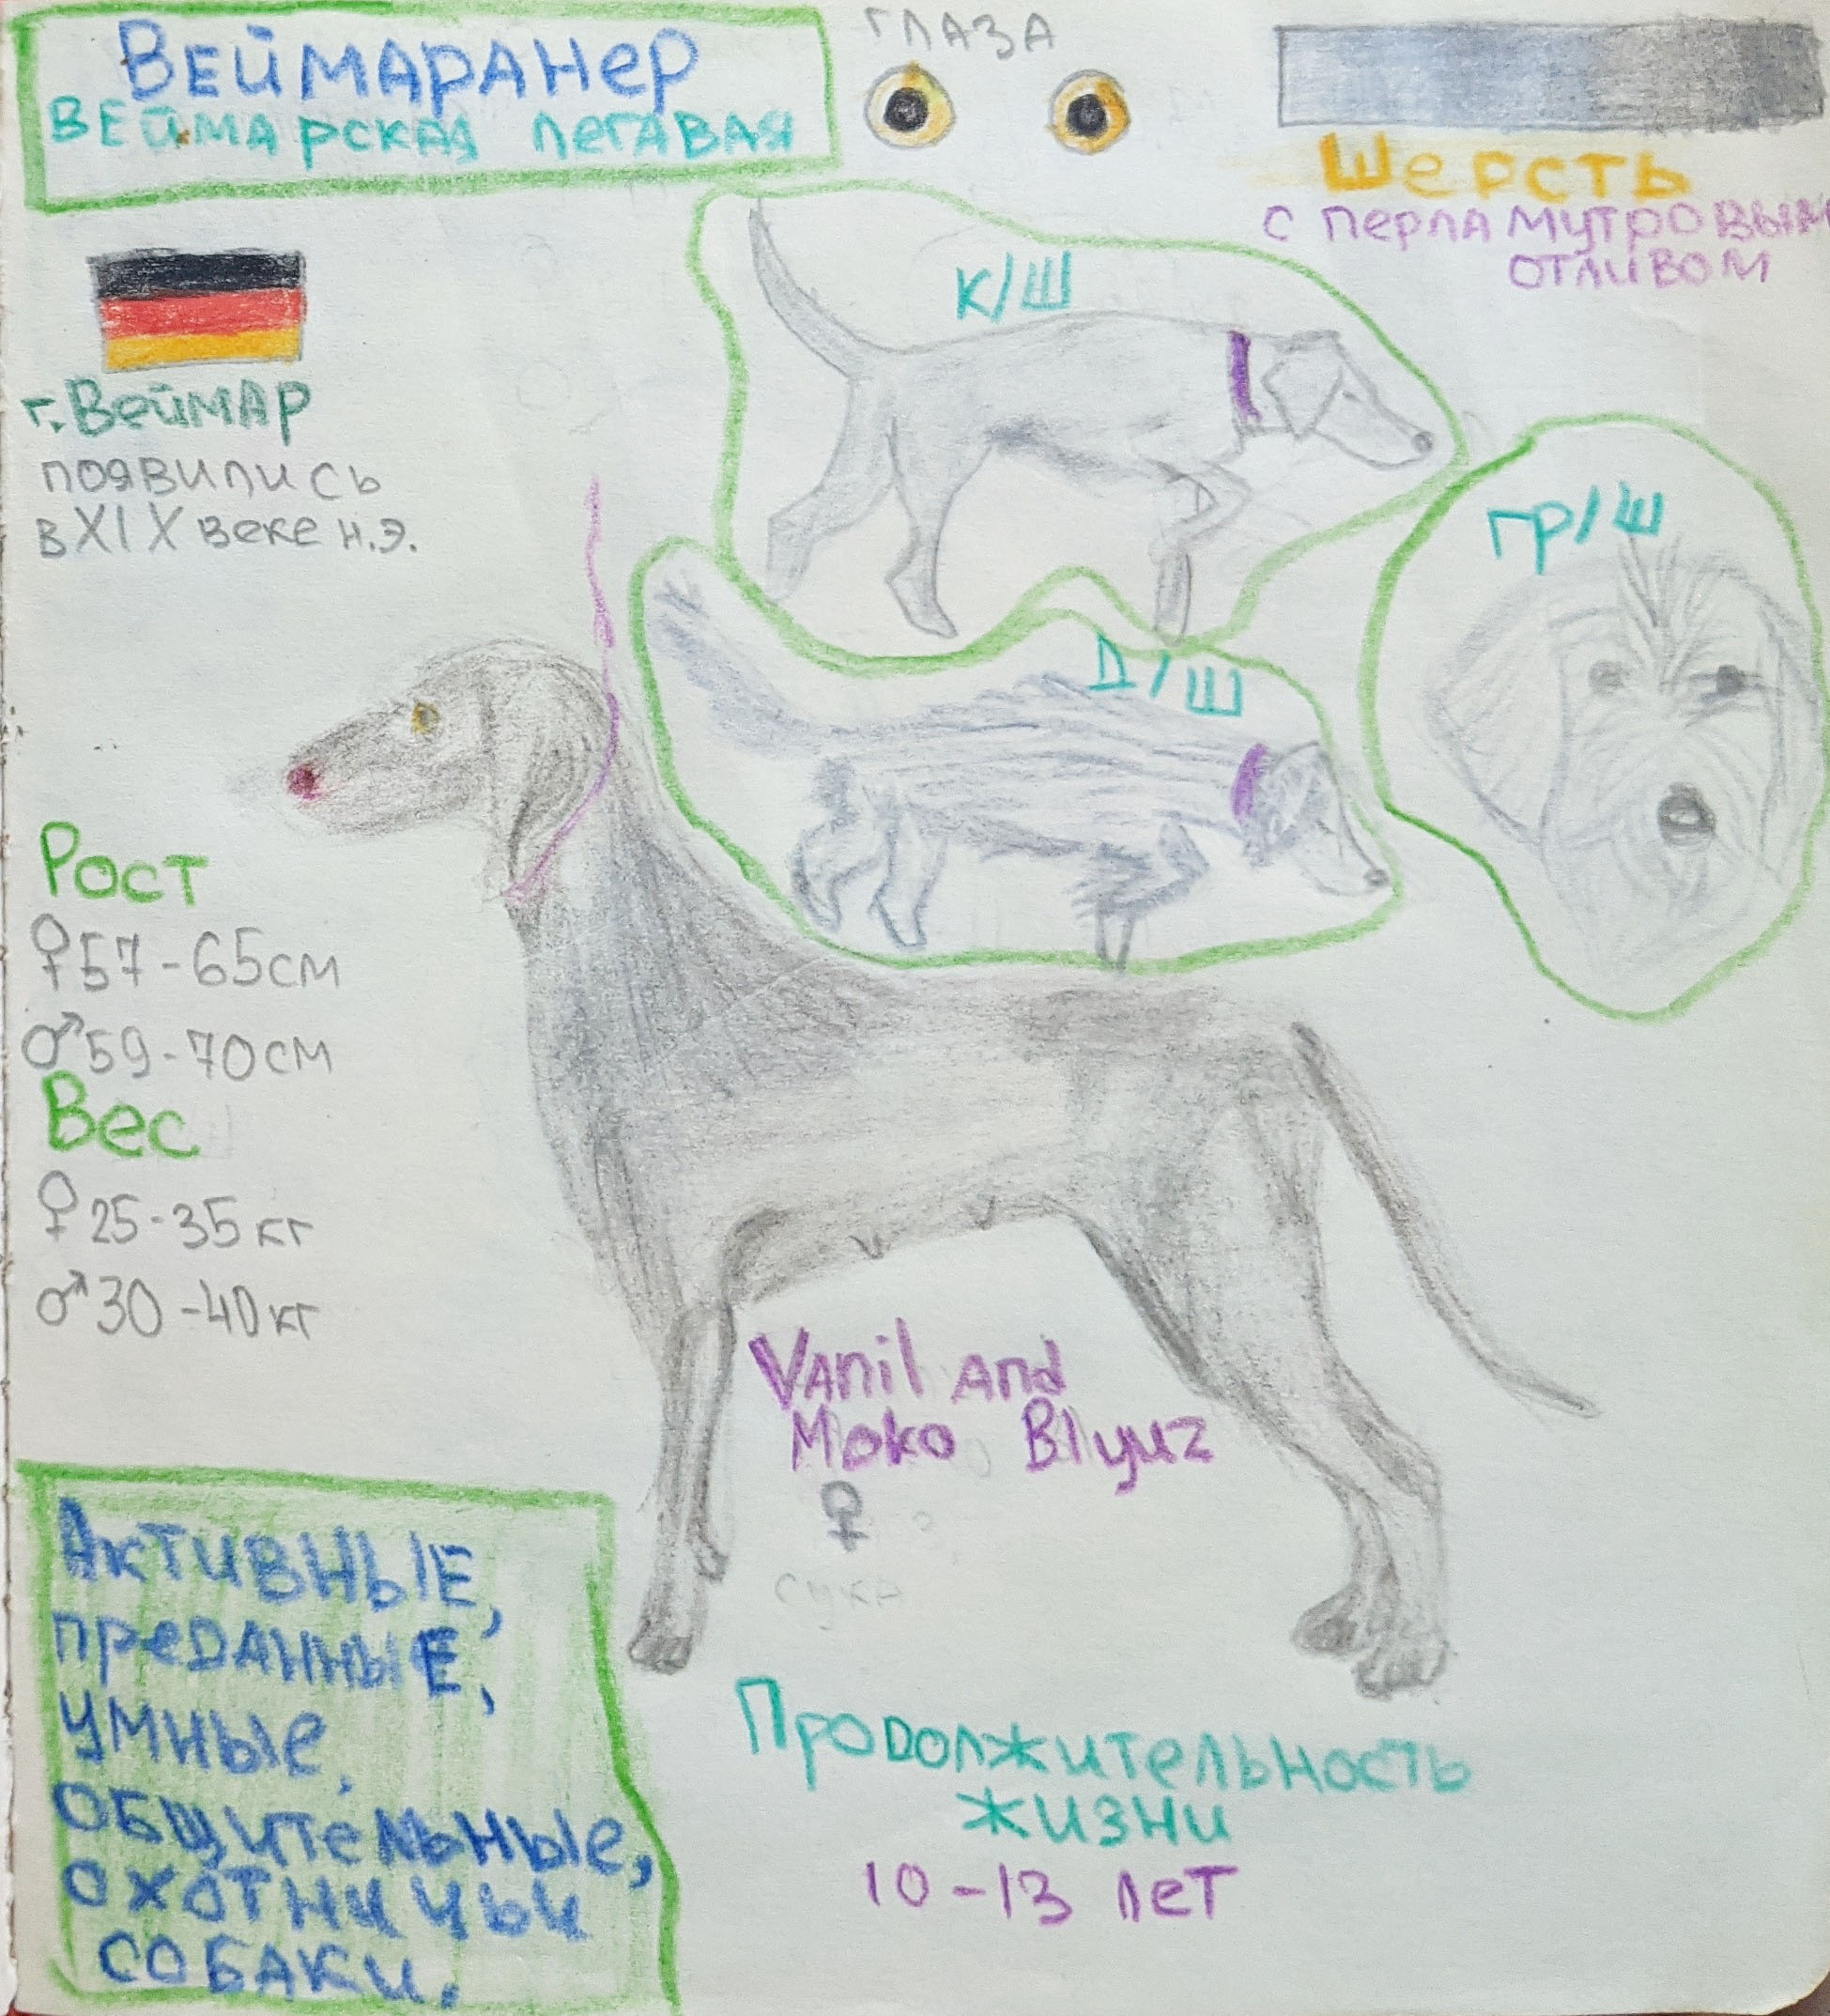 Веймаранер
Веймарская легавая
глаза
Шерсть
с перламутровым
отливом
г. Веймар
появились
в XIX веке н.э.
к/ш
гр/ш
д/ш
Рост
♀57-65см
♂59-70см
Вес
♀25-35кг
♂30-40кг
Vanil and
Moko Blyuz
♀
сука
Активные,
преданные,
умные,
общительные,
охотничьи
собаки.
Продолжительность
жизни
10-13 лет